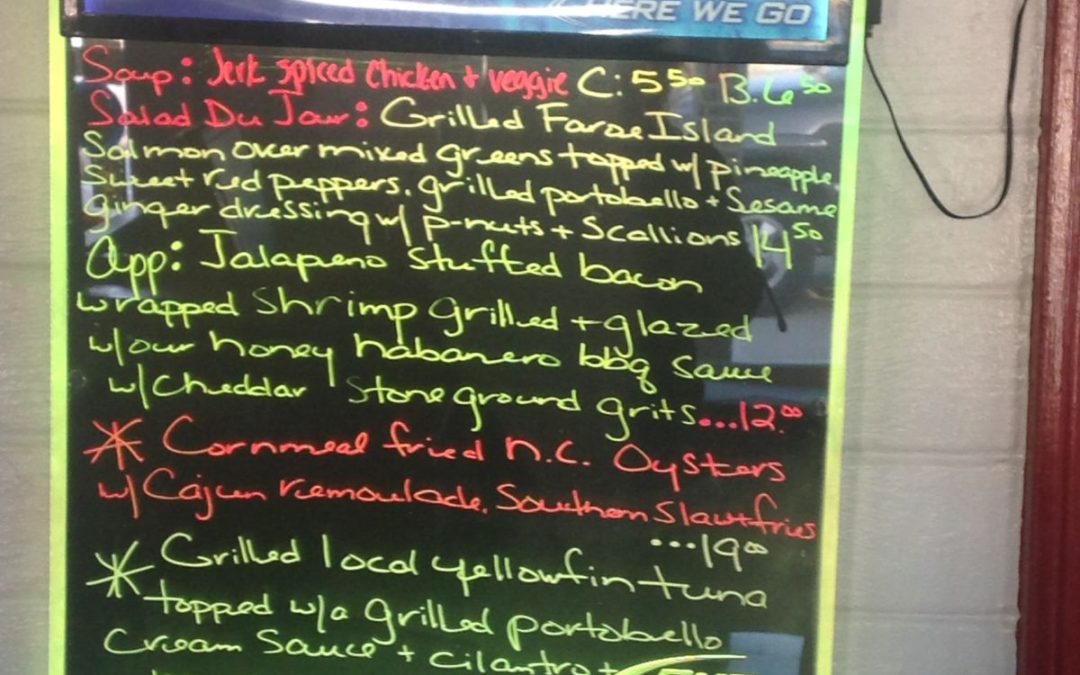 HERE WE GO
Soup: Jerk spiced Chicken + veggie C: 5 50 B. 6 50
Salad Du Jour: Grilled Faroe Island
Salmon over mixed greens topped w/ pineapple
Sweet red peppers, grilled portobello + Sesame
ginger dressing w/ p-nuts + Scallions 14 50
App: Jalapeno Stuffed bacon
wrapped Shrimp grilled + glazed
w/our honey habanero bbq sauce
w/Cheddar Stone ground grits...12.00
* Cornmeal fried N.C. Oysters
w/ Cajun remoulade, Southern Slaw + fries
...19 00
* Grilled local yellowfin tuna
topped w/a grilled portobello
Cream Sauce + cilantro +